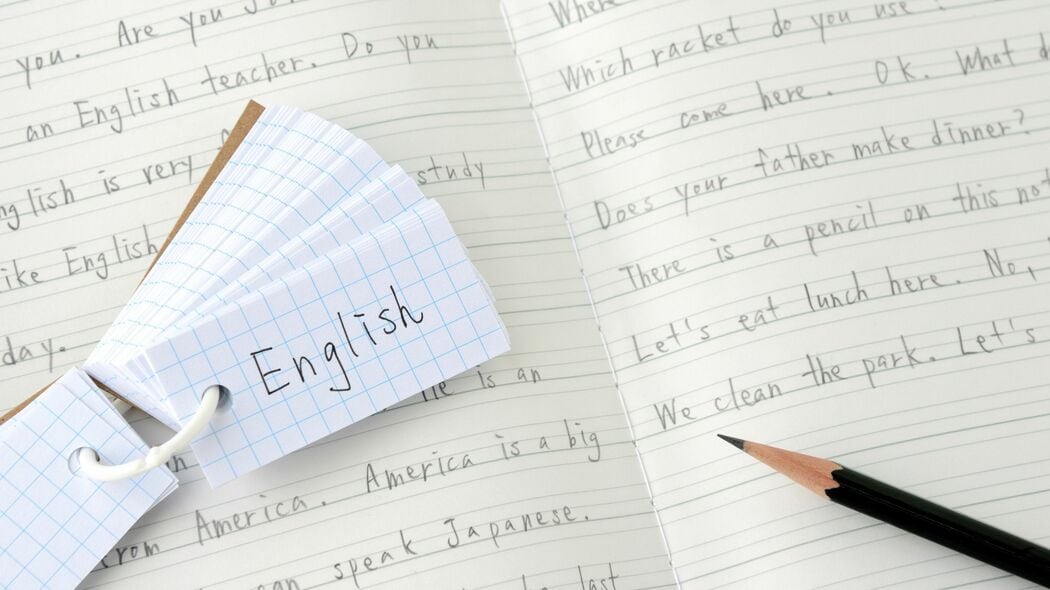 you. Are you
an English teacher. Do you
English is very
study
like English
day.
English
is an
from America. America is a big
can speak Japanese.
last
Where
Which racket do you use ?
Please come here. Ok. What
Does your father make dinner?
There is a pencil on this
Let's eat lunch here. No,
We clean the park. Let's